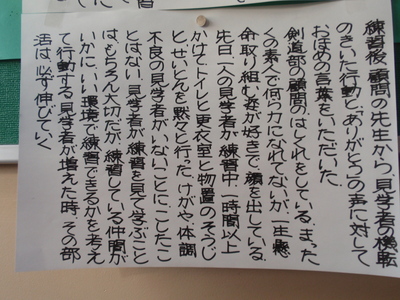 練習後、顧問の先生から、見学者の機転
のきいた行動と「ありがとう」の声に対して
おほめの言葉をいただいた。
剣道部の顧問のはしくれをしている。まった
くの素人で何の力になれてないが、一生懸
命取り組む姿が好きで、顔を出している。
先日、一人の見学者が練習中、一時間以上
かけて、トイレと更衣室と物置のそうじ
と、せいとんを黙々と行った。けがや、体調
不良の見学者がいないことに、こしたこ
とはない。見学者が練習を見て学ぶこと
はもちろん大切だが、練習している仲間が
いかに、いい環境で練習できるかを考え
て行動する見学者が増えた時、その部
活は、必ず伸びていく